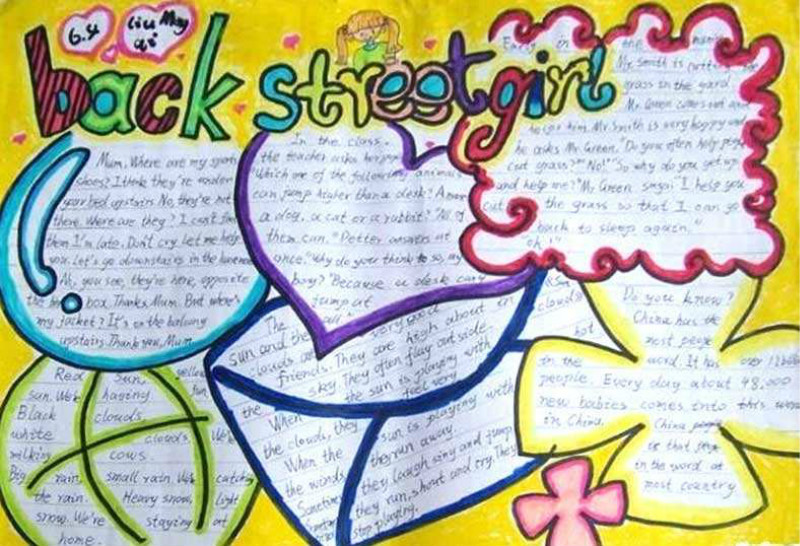 6.4
Liu May
qi
back street girl
Early in the morning
Mr. Smith is putting the
grass in the yard.
Mr. Green comes out and
help him. Mr. Smith is very happy and
he asks Mr. Green, "Do you often help people
cut grass?" "No!" "So why do you get up
and help me?" Mr. Green says: "I help you
cut the grass so that I can go
back to sleep again."
"oh!"
Mum, Where are my sports
shoes? I think they're under
your bed upstairs No, they're not
there. Where are they? I can't find
them I'm late. Don't cry. Let me help
you. Let's go downstairs in the
Ah, you see, they're here, opposite
the box. Thanks, Mum. But where's
my jacket? It's on the balcony
upstairs. Thank you, Mum
In the class,
the teacher asks
"Which one of the following animals
can jump higher than a desk? A
a dog, a cat or a rabbit? "All of
them can." Petter answers at
once. "Why do your think so, my
boy?" Because a desk can't
jump at
all."
The very good
sun and the high about in
clouds are
friends. They are
sky They often play outside
the sun is playing with
feel very
the When
the clouds, they
When the
the winds
Sometimes
sun is playing with
they run away.
they laugh sing and jump
they run, shout and cry. They
stop playing.
& Sun
clouds
hot
Red Sun, yellow
sun. We're having fun.
Black clouds,
white clouds. We're
milking cows.
Big rain, small rain We're catching
the rain. Heavy snow, light
snow. We're staying at
home.
Do you know?
China has the
most people
in the word. It has over 12
people. Every day about 48,000
new babies comes into this
in China. China people
is that people
in the word at
most country